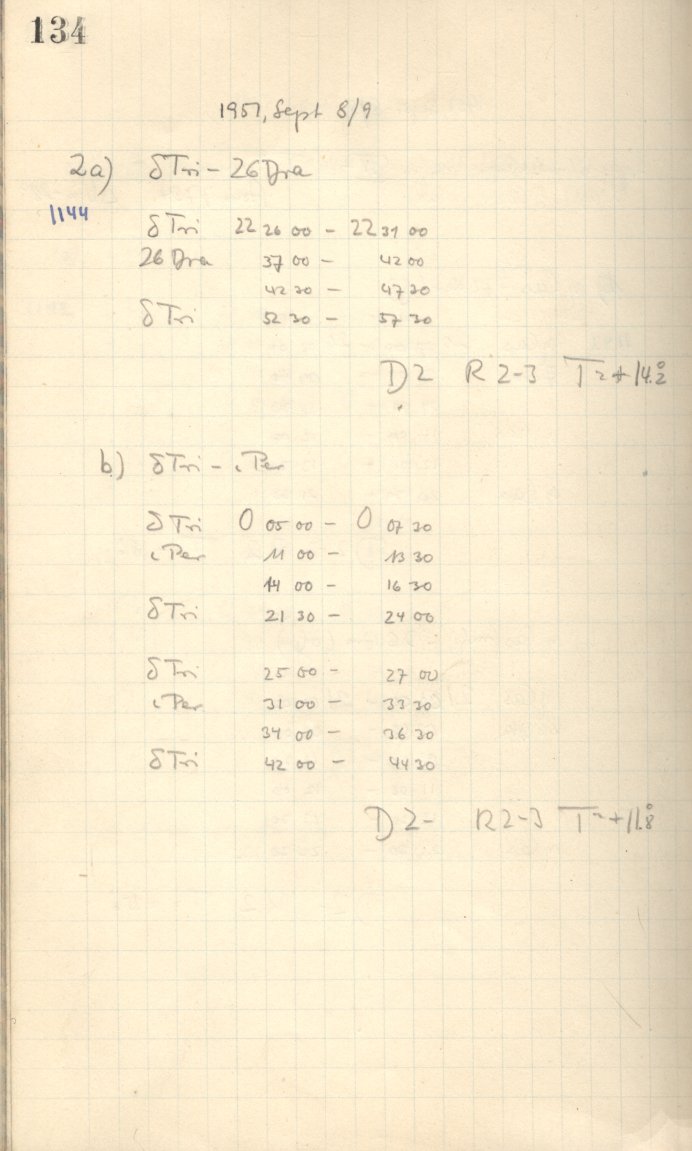 134
1951, Sept 8/9
2a) δTri - 26 Dra
1144
δTri 22 26 00 - 22 31 00
26 Dra 37 00 - 42 00
42 30 - 47 30
δTri 52 30 - 57 30
D2 R 2-3 T = +14.°2
b) δTri - ι Per
δTri 0 05 00 - 0 07 30
ι Per 11 00 - 13 30
14 00 - 16 30
δTri 21 30 - 24 00
δTri 25 00 - 27 00
ι Per 31 00 - 33 30
34 00 - 36 30
δTri 42 00 - 44 30
D 2- R 2-3 T = +11.°8